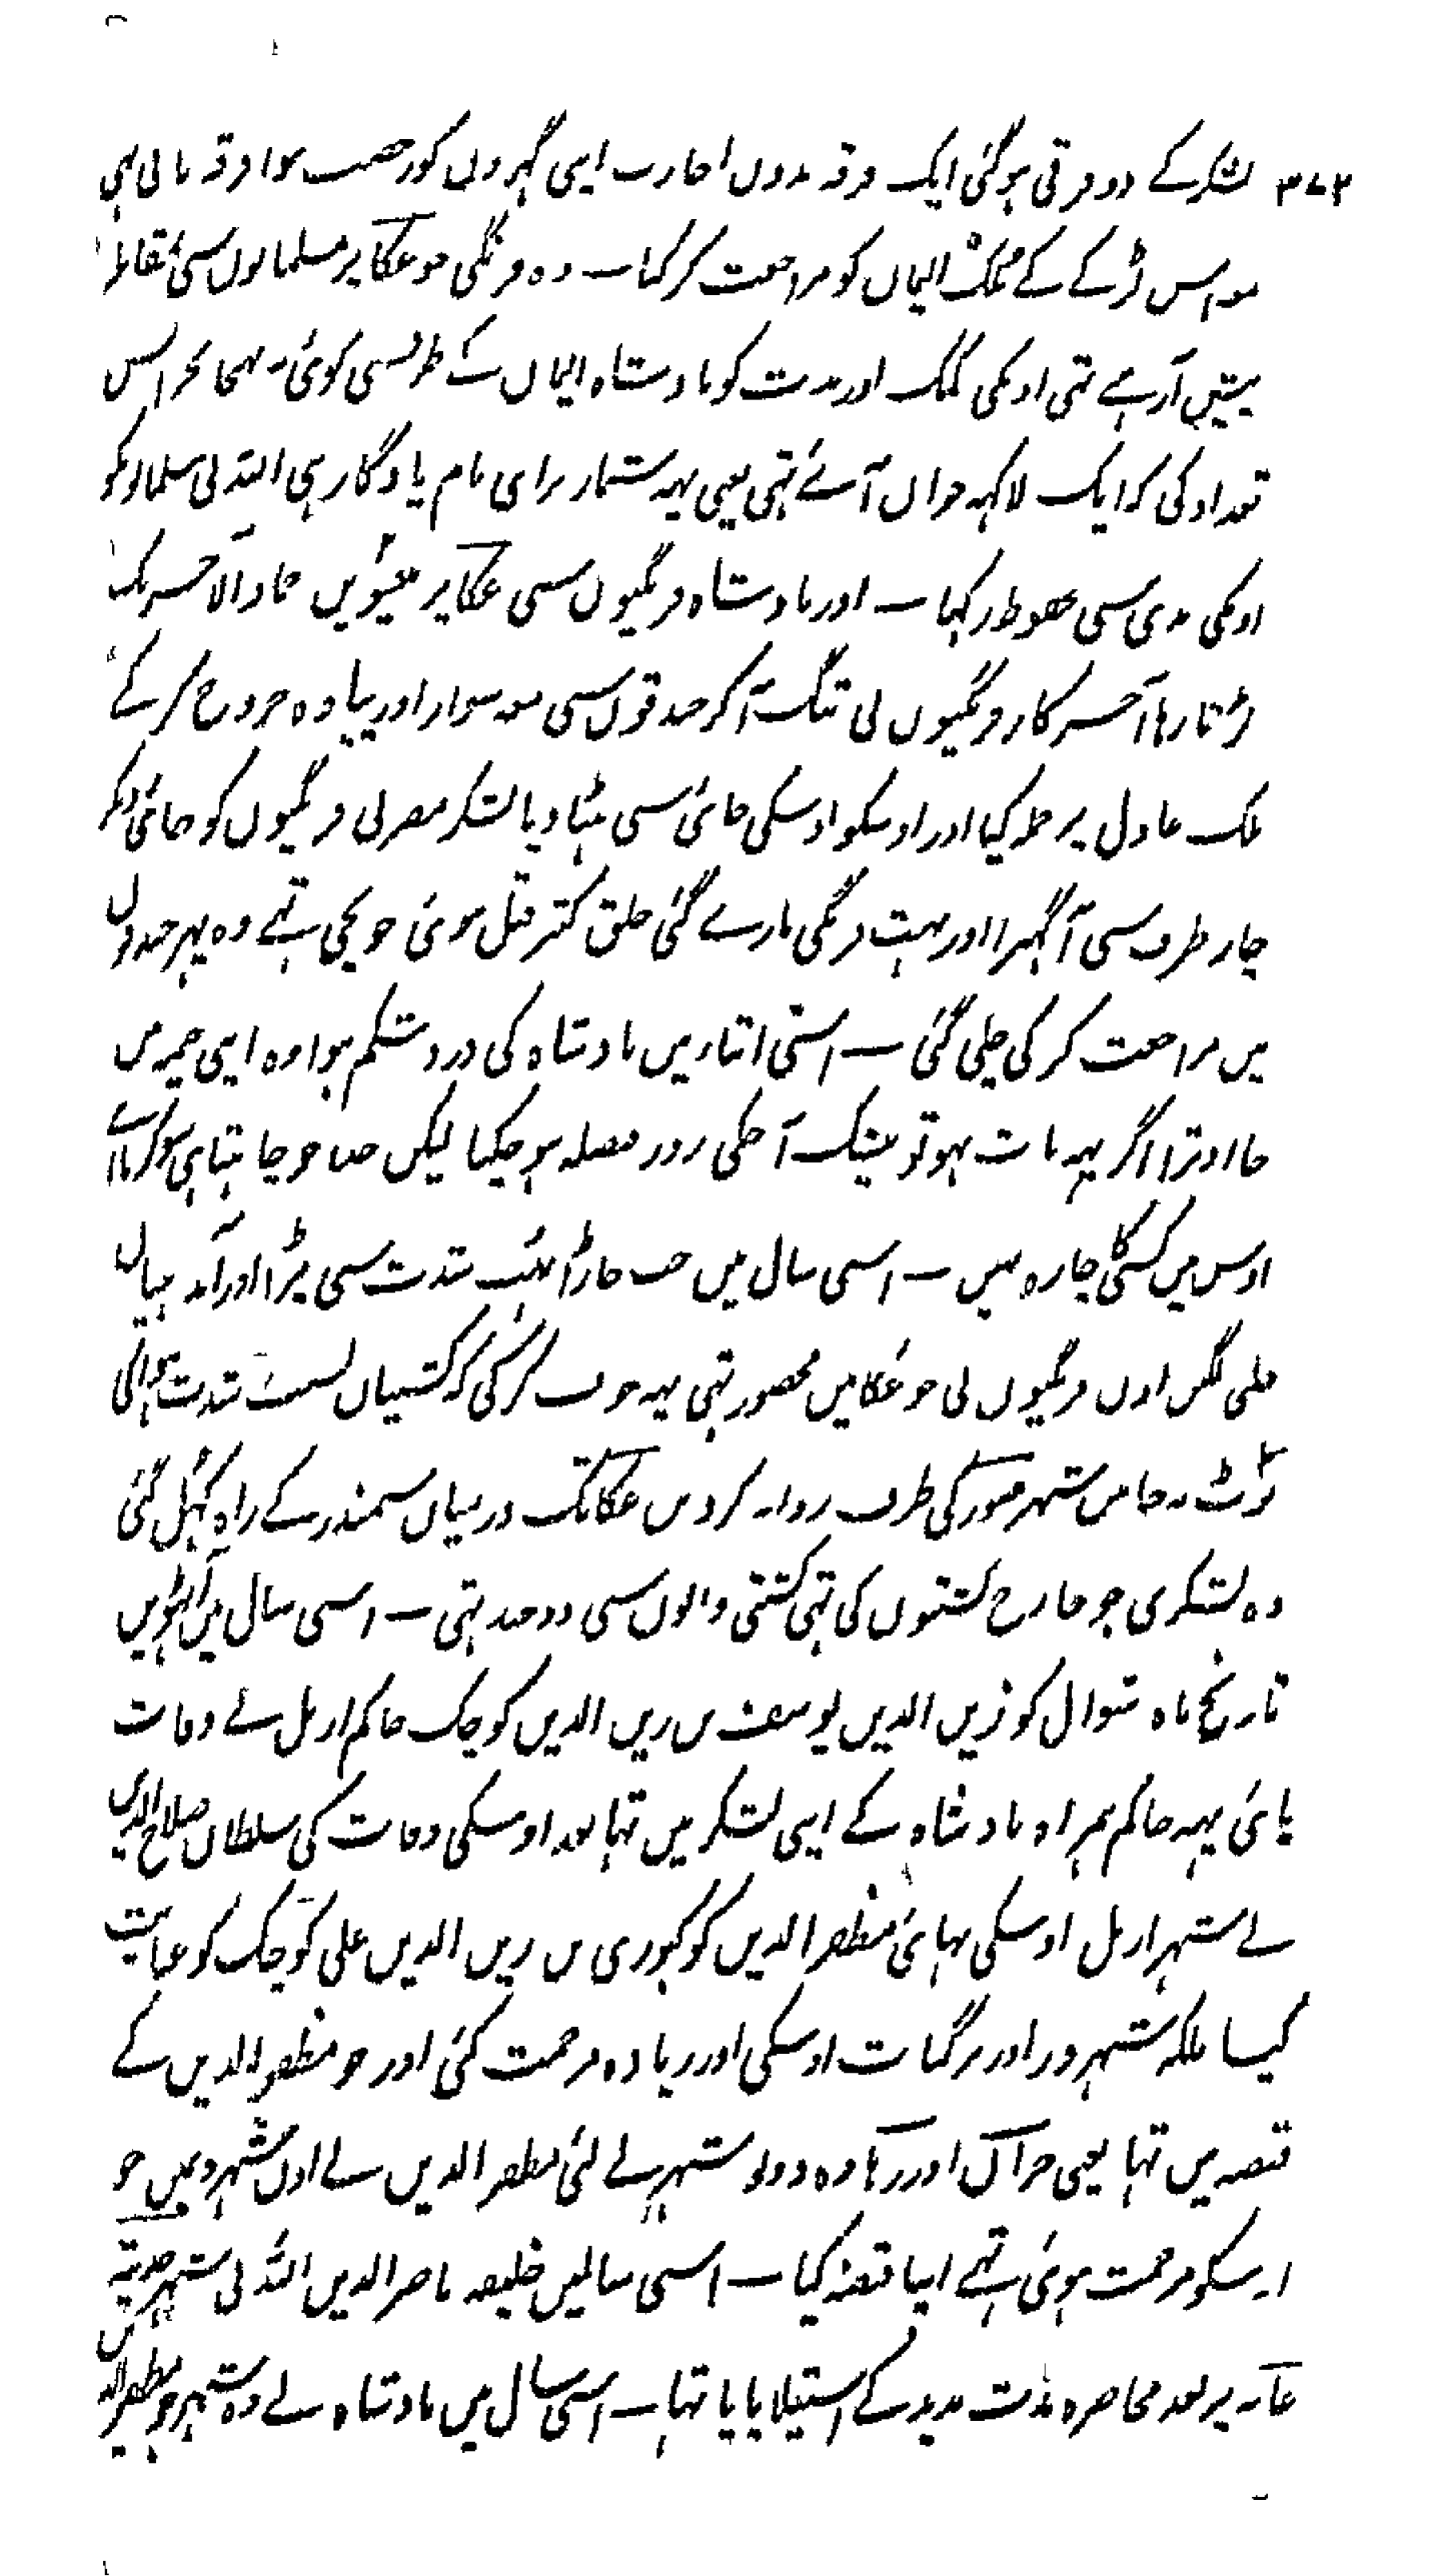 ۳۷۳ لشکر کے دو فرقی ہو گئی ایک فرقہ بدون اجازت اپنی گہرون کو رخصت ہوا فرقہ باقی ہی
مع اس لڑکے کے ملک المان کو مراجعت کر گیا ۔ وہ فرنگی جو عکا پر مسلمانوں سی مقابلہ
میں آ رہے تھی اونکی کمک اور مدت کو بادشاہ المان کے طرف سی کوئی نہ پہنچا بجز اس
تعداد کی کہ ایک لاکہہ جوان آئے تہی یہی یہہ شمار برای نام یادگار ہی اللہ نی مسلمانونکو
اونکی بدی سی محفوظ رکہا ۔ اور بادشاہ فرنگیوں سی عکا پر بیسویں جمادالآخر تک
لڑتا رہا آخر کار فرنگیوں نی تنگ آ کر خندقوں سی مع سوار اور پیادہ خروج کر کے
ملک عادل پر حملہ کیا اور اوسکو اوسکی جائی سی ہٹا دیا لشکر مصر نی فرنگیوں کو جائی دیکر
چار طرف سی آ گہیرا اور بہت فرنگی مارے گئی خلق کثیر قتل ہوئی جو بچی تہے وہ پہر خندقوں
میں مراجعت کر کی چلی گئی ۔ اسی اثنا میں بادشاہ کی درد شکم ہوا وہ اپنی خیمہ میں
جا اوترا اگر یہہ بات نہوتو بیشک آج کی روز فیصلہ ہو چکتا لیکن خدا جو چاہتا ہی سو کرتا ہے
اوس میں کسی کا چارہ نہیں ۔ اسی سال میں جب جاڑا بہت شدت سی پڑا اور آندہیاں
چلنی لگیں اون فرنگیوں نی جو عکا میں محصور تہی یہہ خوف کر کی کہ کشتیاں بسبب شدت ہوا کی
ٹوٹ نہ جائیں شہر صور کی طرف روانہ کر دیں عکا تک درمیان سمندر کے راہ کہل گئی
وہ لشکری جو خارج کشتیوں کی تہی کشتی والوں سی دو چند تہی ۔ اسی سال میں اٹہویں
تاریخ ماہ شوال کو زین الدین یوسف بن زین الدین کوچک حاکم اربل نے وفات
پائی یہہ حاکم ہمراہ بادشاہ کے اپنی لشکر میں تہا بعد اوسکی وفات کی سلطان صلاح الدین
نے شہر اربل اوسکی بہائی مظفر الدین کوکبوری بن زین الدین علی کوچک کو عنایت
کیا بلکہ شہرزور اور پرگنات اوسکی اور زیادہ مرحمت کئی اور جو مظفر الدین کے
قبضہ میں تہا یعنی حران اور رہا وہ دونو شہر لے لئی مظفر الدین نے اون شہرونمیں جو
اوسکو مرحمت ہوئی تہے اپنا قبضہ کیا ۔ اسی سالمیں خلیفہ ناصر الدین اللہ نی شہر حدیثہ
عانہ پر بعد محاصرہ مدت مدید کے استیلا پایا تہا ۔ اسی سال میں بادشاہ نے وہ شہر جو مظفر الدین